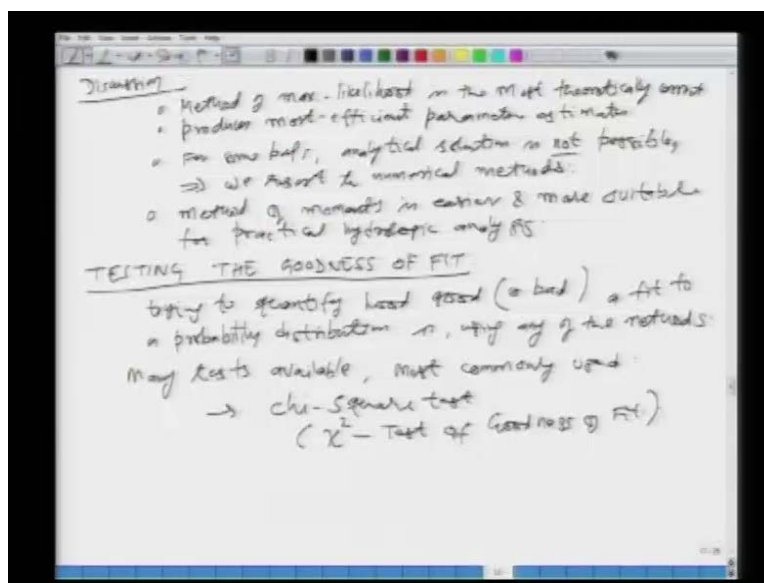 Discussion
• Method of max-likelihood is the most theoretically correct
• produces most-efficient parameter estimates
• For some pdfs, analytical solution is not possible,
⇒ we resort to numerical methods.
• method of moments is easier & more suitable
for practical hydrologic analysis.
TESTING THE GOODNESS OF FIT
trying to quantify how good (or bad) a fit to
a probability distribution is, using any of the methods.
Many tests available, most commonly used.
→ chi-square test
(χ² - Test of Goodness of Fit)